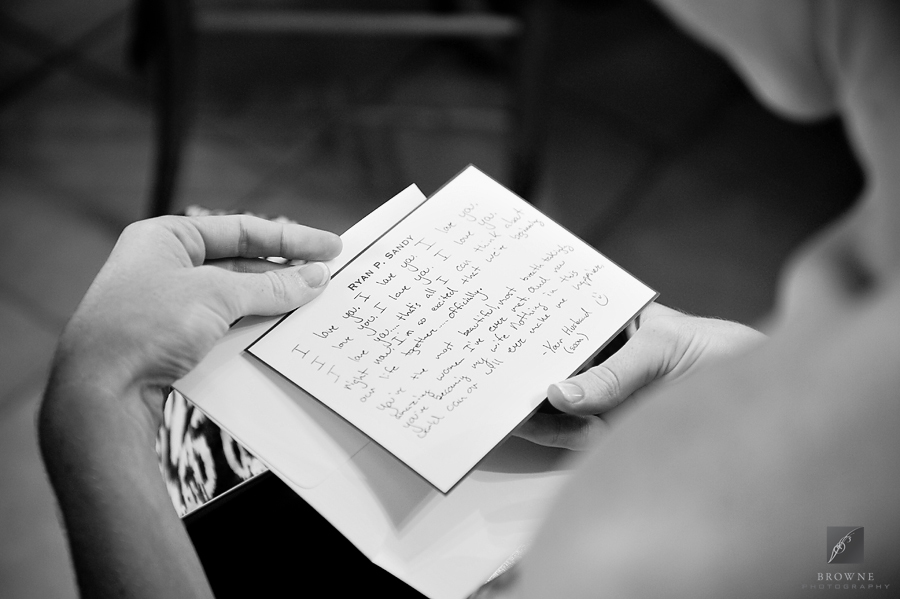 RYAN P. SANDY
I love you. I love you. I love you.
I love you. I love you. I love you.
I love you... that's all I can think about
right now. I'm so excited that we're beginning
our life together... officially.
You're the most beautiful, most breathtaking,
amazing woman I've ever met. And now
you're becoming my wife. Nothing in this
world can or will ever make me happier
-Your Husband
(soon)
BROWNE
PHOTOGRAPHY